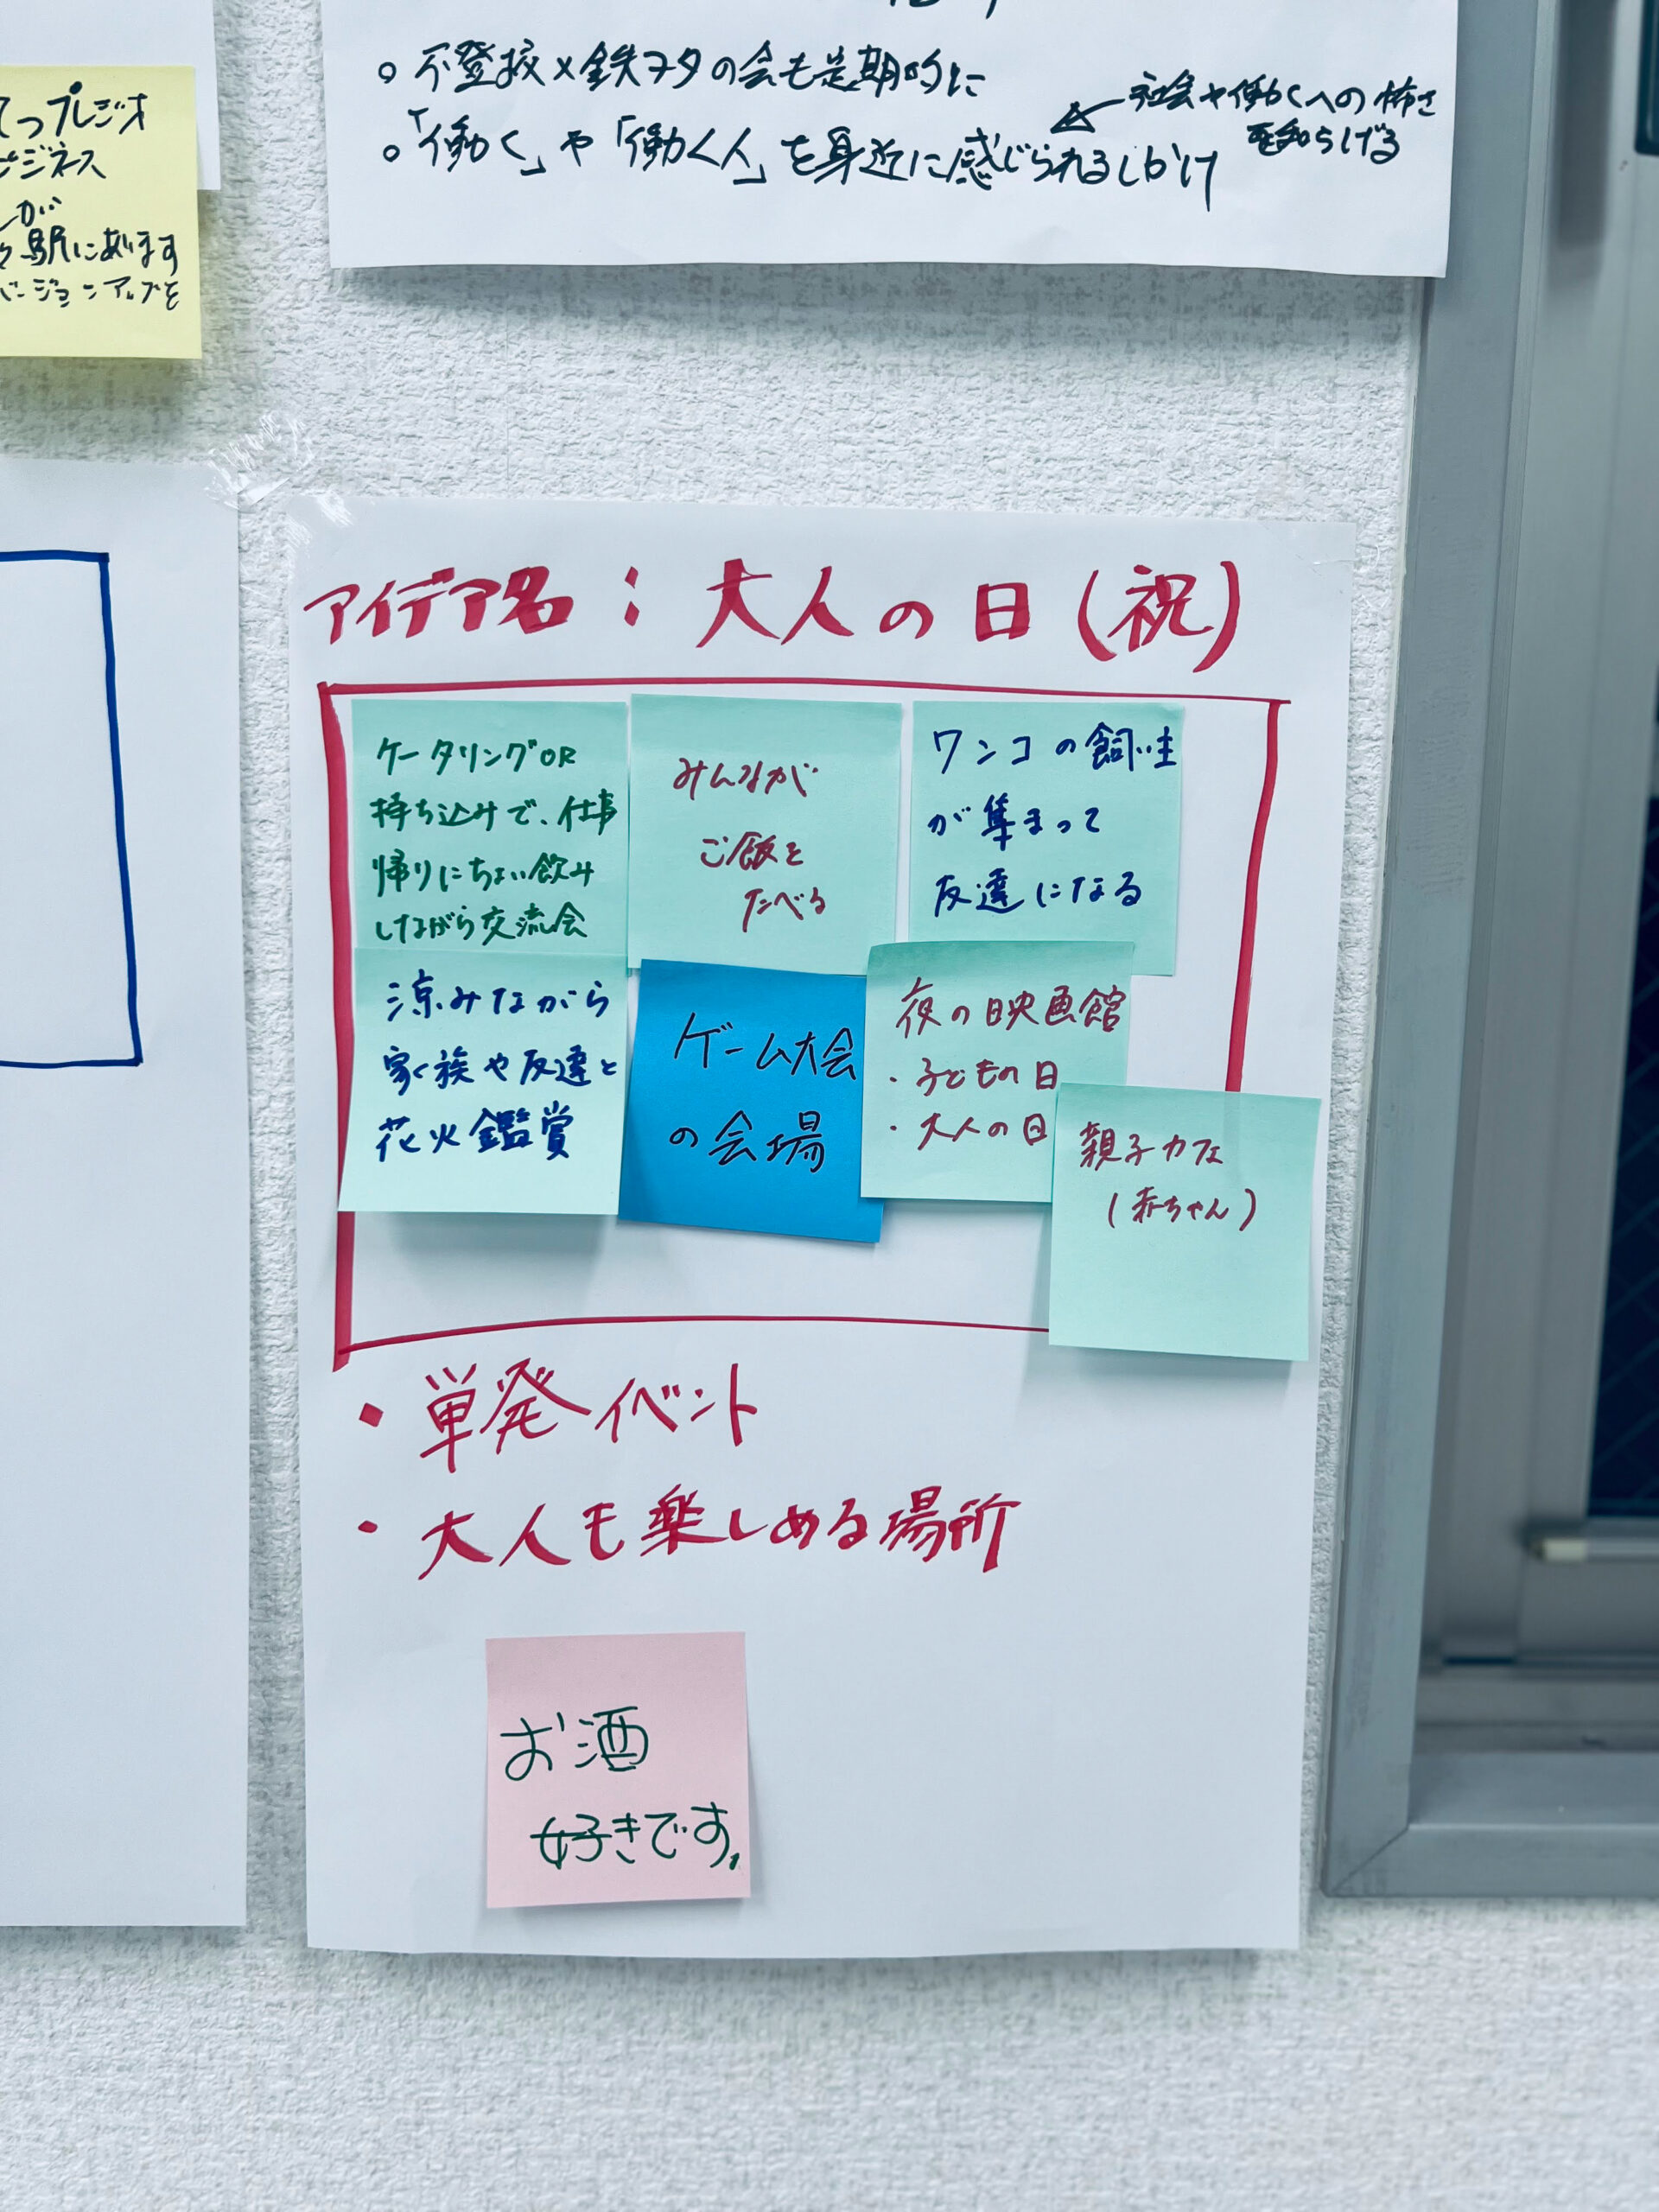 ○不登校×鉄ヲタの会も定期的に
○「働く」や「働く人」を身近に感じられるしかけ
←社会や働くへの怖さ
を和らげる
てつプレジオ
ビジネス
が
駅にあります
バージョンアップを
アイデア名：大人の日（祝）
ケータリングOR
持ち込みで、仕事
帰りにちょい飲み
しながら交流会
みんなが
ご飯を
たべる
ワンコの飼い主
が集まって
友達になる
涼みながら
家族や友達と
花火鑑賞
ゲーム大会
の会場
夜の映画館
・子どもの日
・大人の日
親子カフェ
（赤ちゃん）
・単発イベント
・大人も楽しめる場所
お酒
好きです。